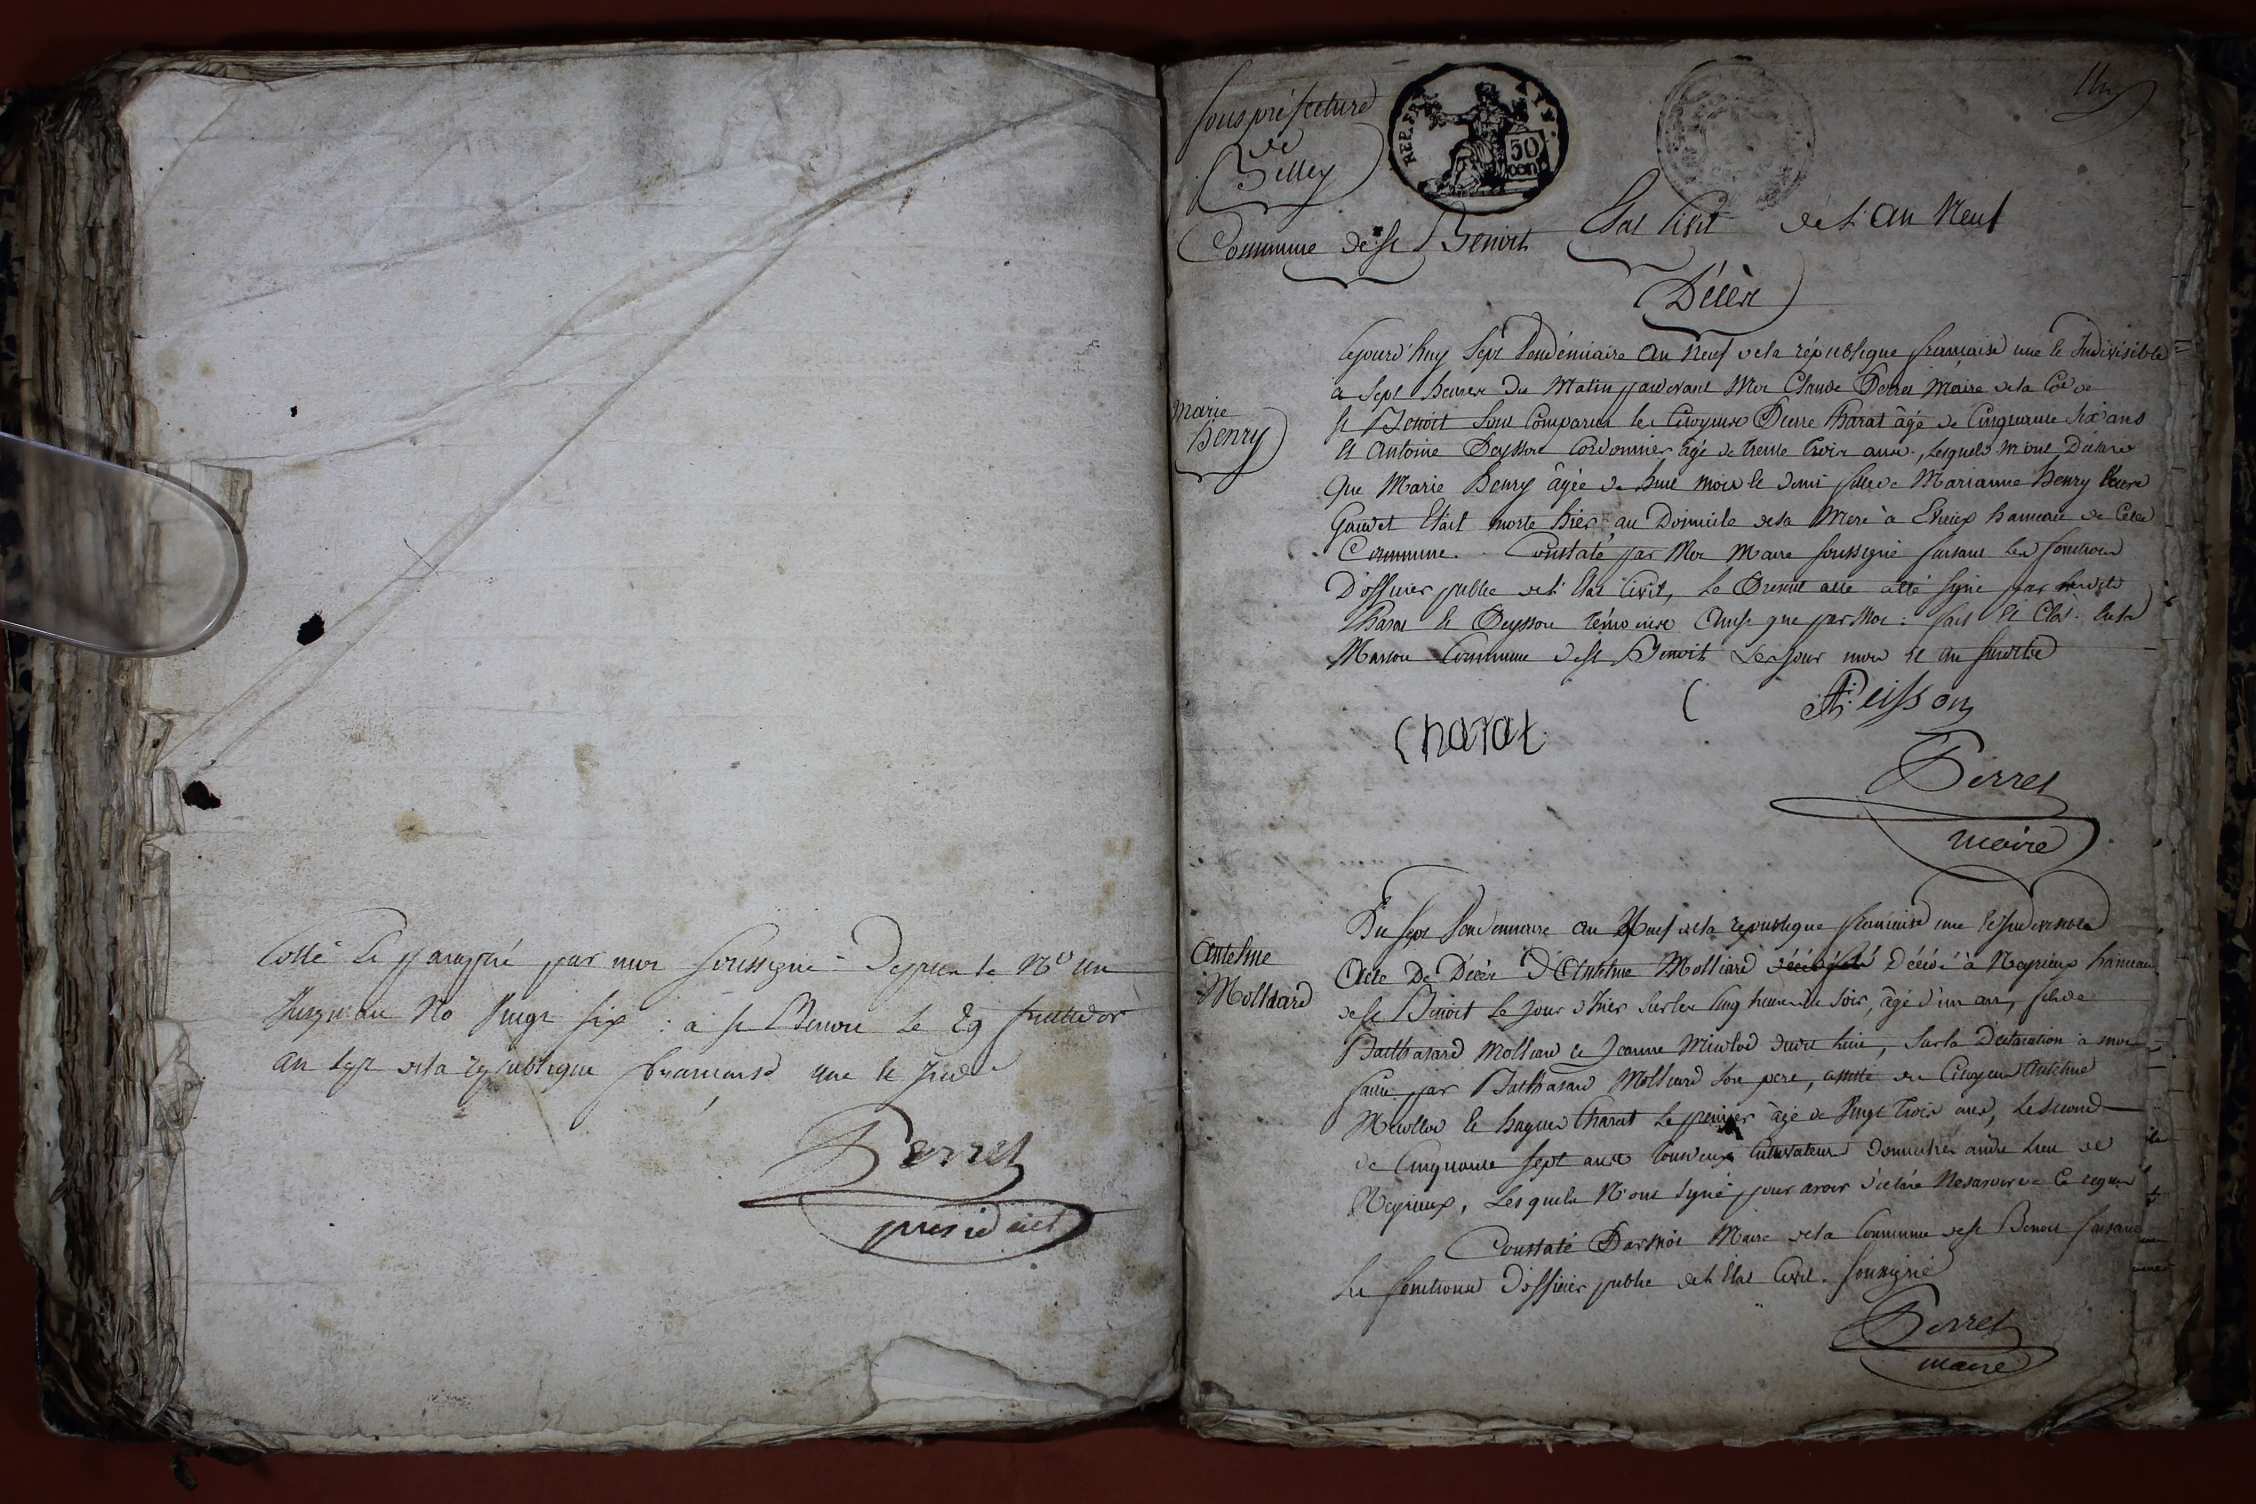 Cotté et paraphé par moi soussigné Depuis le No un
Jusqu'au No Vingt six : a st Benoit le 29 fructidor
an sept de la republique francaise une et Ind
Perret
president
Un
Souspréfecture
de
Belley
REP. FRA
50
cen
Commune de st Benoit
Etat Civil de l'an Neuf
Décès
Marie
Henry
Cejourd'huy Sept Vendémiaire an Neuf de la république francaise une et Indivisible
a Sept heures du Matin pardevant Moi Claude Perret Maire de la Cne de
st Benoit sont Comparus les Citoyens Pierre Charat âgé de Cinquante Six ans
et Antoine Peysson Cordonnier âgé de trente trois ans, Lesquels m'ont Déclaré
Que Marie Henry âgée de huit mois et demi fille de Marianne Henry
Etait morte hier au Domicile de sa Mere à Evieux hameau de Cette
Commune. Constaté par Moi Maire soussigné faisant les fonctions
D'officier public de l'Etat Civil, Le Present acte a été signé par
Charat et Peysson témoins Ainsi que par Moi : fait et Clos En la
Maison Commune de st Benoit Les jour mois et an susdits
Peisson
Charat
Perret
maire
Antelme
Molliard
Du sept Vendemiaire an Neuf de la republique francaise une et Indivisible
Acte De Décès D'Antelme Molliard Décédé à Neyrieux hameau
de st Benoit Le jour d'hier sur les Cinq heures du soir, âgé d'un an, fils de
Balthasard Molliard et Jeanne, sur la Déclaration à moi
faite par Balthasard Molliard son pere, assisté du Citoyen Antelme
et Charat Le premier âgé de Vingt Trois ans, Le second
de Cinquante sept ans tous deux Cultivateurs Domiciliés audit Lieu de
Neyrieux, Lesquels N'ont signé pour avoir déclaré Ne savoir de Ce requis
Constaté Par Moi Maire de la Commune de st Benoit faisant
Les fonctions d'officier public de l'Etat Civil. soussigné
Perret
maire